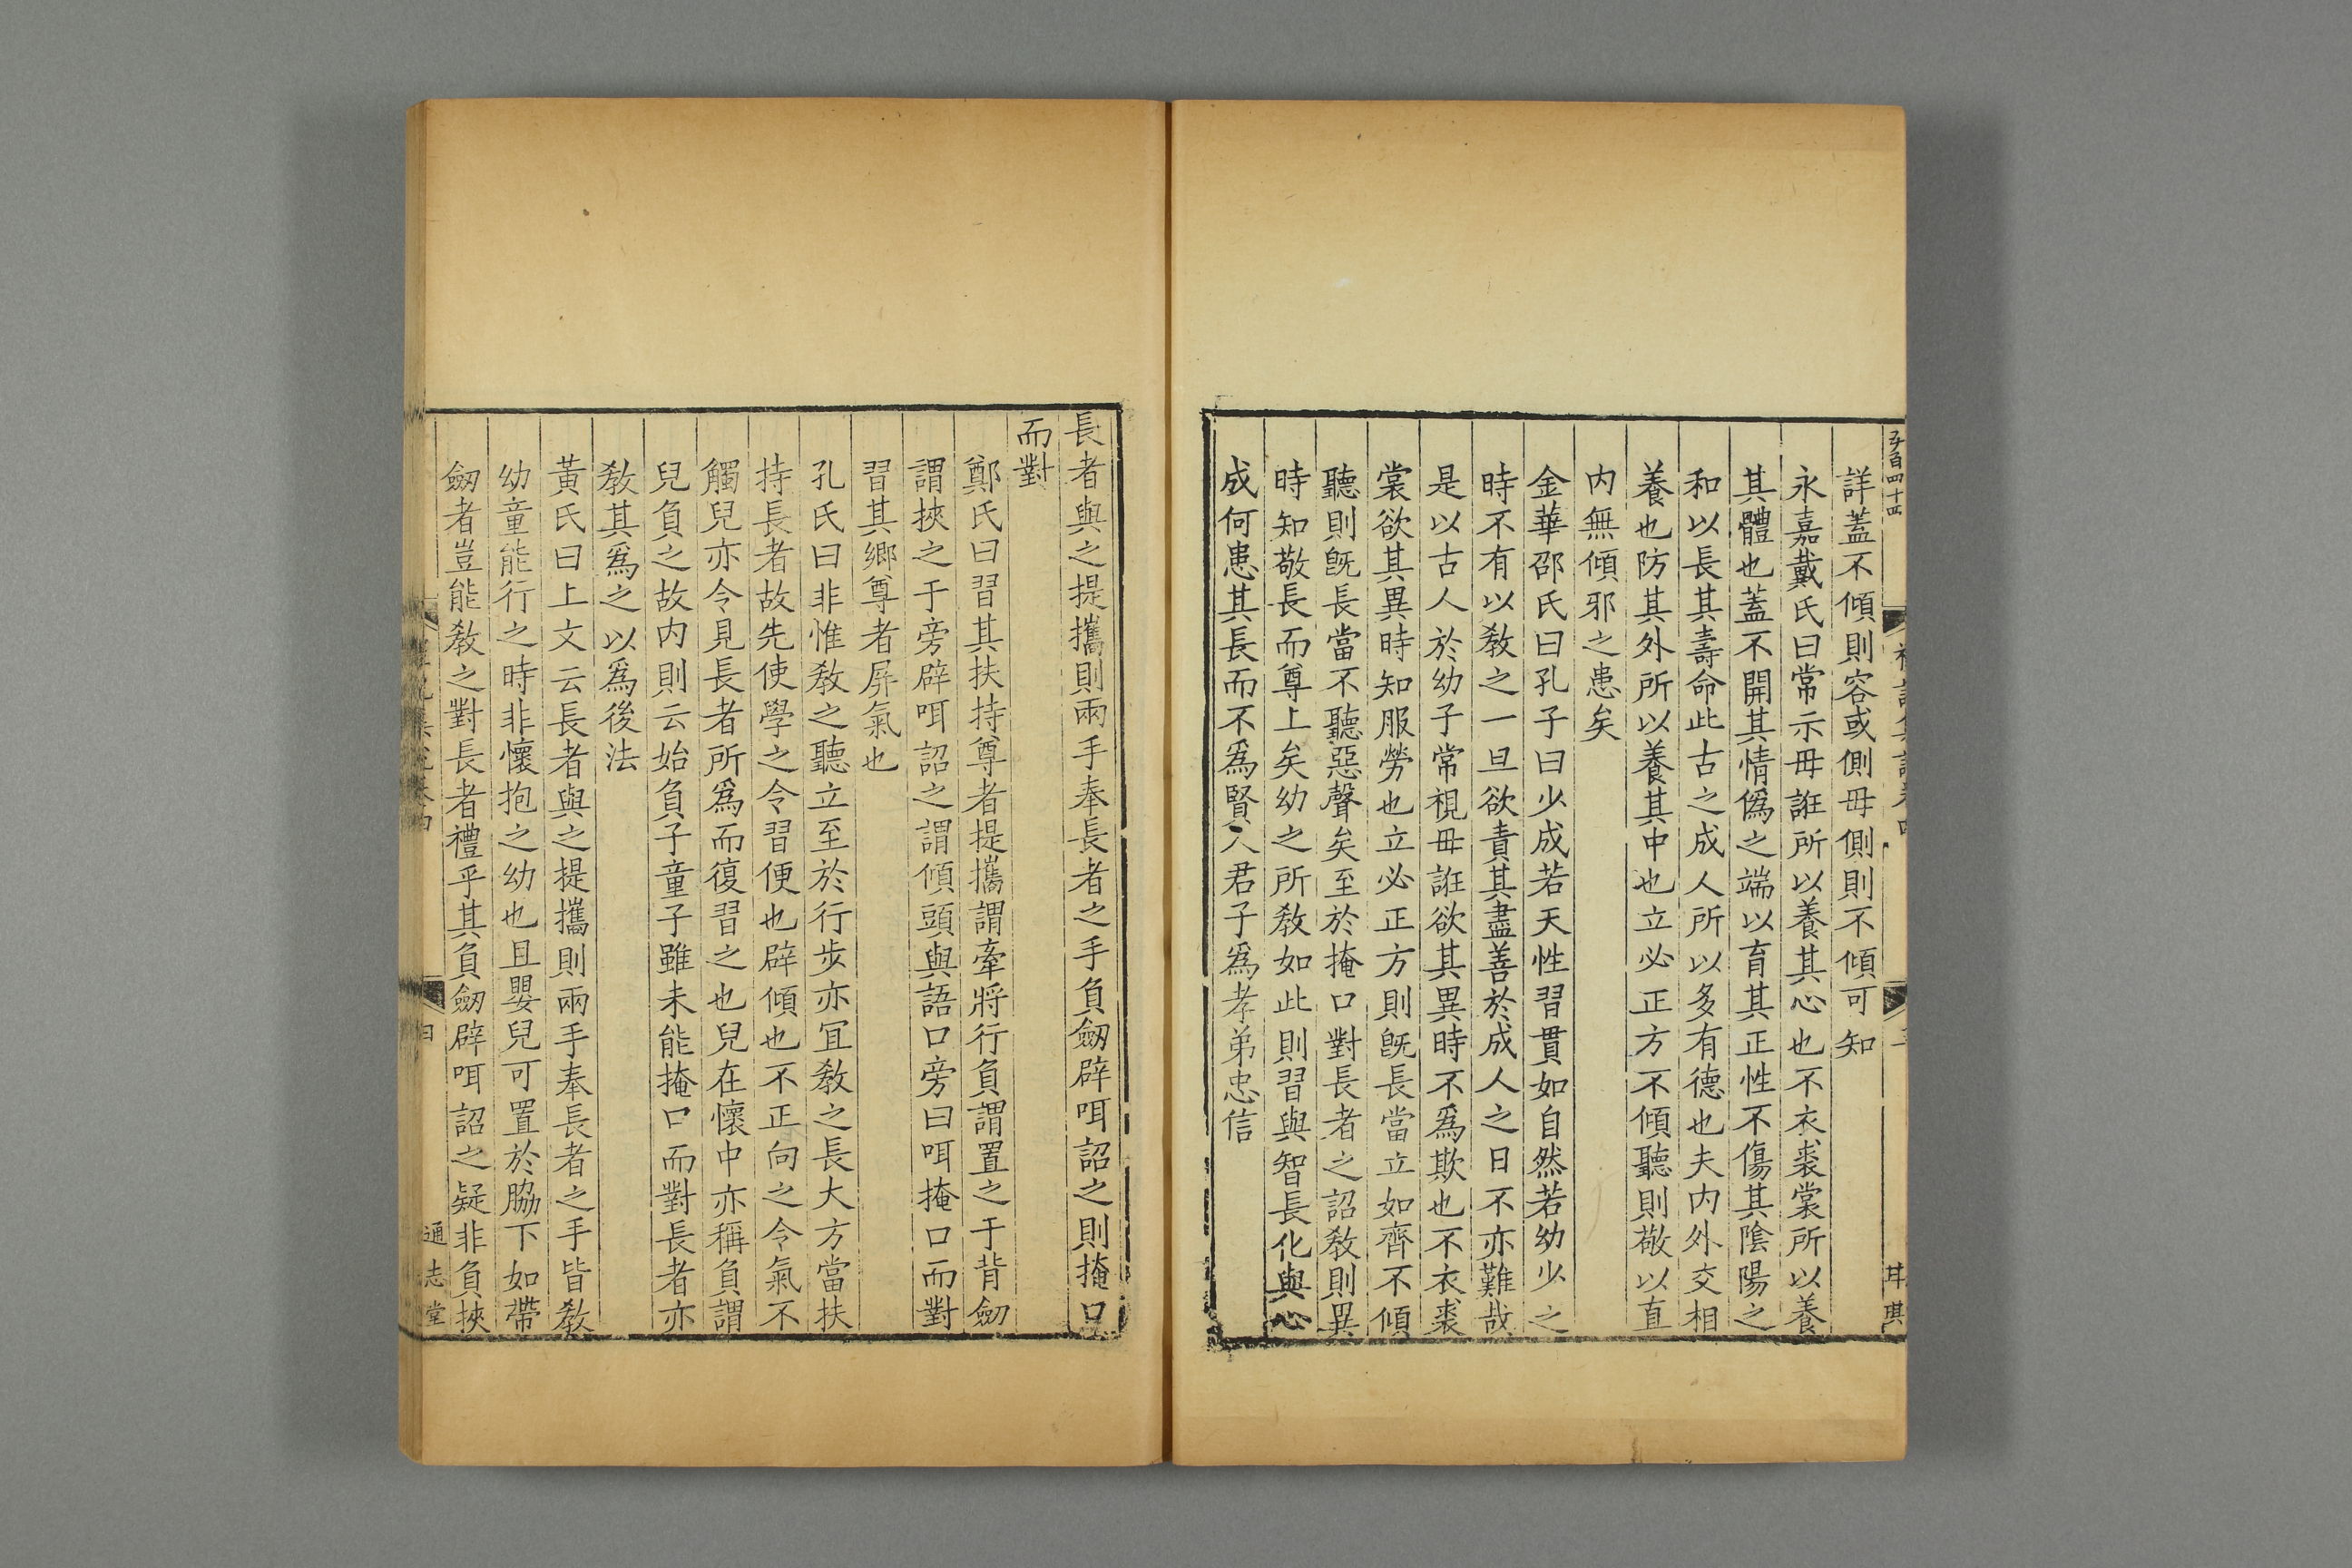 五百四十四
詳蓋不傾則容或側毋側則不傾可知
永嘉戴氏曰常示毋誑所以養其心也不衣裘裳所以養
其體也蓋不開其情僞之端以育其正性不傷其陰陽之
和以長其壽命此古之成人所以多有德也夫内外交相
養也防其外所以養其中也立必正方不傾聽則敬以直
内無傾邪之患矣
金華邵氏曰孔子曰少成若天性習貫如自然若幼少之
時不有以敎之一旦欲責其盡善於成人之日不亦難哉
是以古人於幼子常視毋誑欲其異時不爲欺也不衣裘
裳欲其異時知服勞也立必正方則旣長當立如齊不傾
聽則旣長當不聽惡聲矣至於掩口對長者之詔敎則異
時知敬長而尊上矣幼之所敎如此則習與智長化與心
成何患其長而不爲賢人君子爲孝弟忠信
長者與之提攜則兩手奉長者之手負劒辟咡詔之則掩口
而對
鄭氏曰習其扶持尊者提攜謂牽將行負謂置之于背劒
謂挾之于旁辟咡詔之謂傾頭與語口旁曰咡掩口而對
習其鄉尊者屏氣也
孔氏曰非惟敎之聽立至於行步亦宜敎之長大方當扶
持長者故先使學之令習便也辟傾也不正向之令氣不
觸兒亦令見長者所爲而復習之也兒在懷中亦稱負謂
兒負之故内則云始負子童子雖未能掩口而對長者亦
敎其爲之以爲後法
黃氏曰上文云長者與之提攜則兩手奉長者之手皆敎
幼童能行之時非懷抱之幼也且嬰兒可置於脇下如帶
劒者豈能敎之對長者禮乎其負劒辟咡詔之疑非負挾
四
通志堂